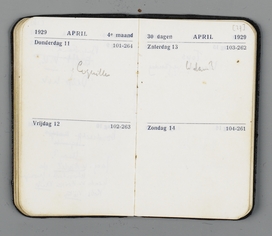 1929 APRIL 4e maand
Donderdag 11 101-264
Vrijdag 12 102-263
30 dagen APRIL 1929
Zaterdag 13 103-262
Zondag 14 104-261